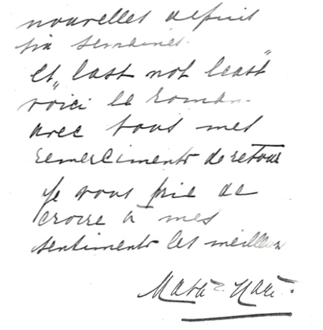 nouvelles depuis
six semaines.
Et, "last not least"
voici le roman.
avec tous mes
remerciments de retour
Je vous prie de
croire à mes
sentiments les meilleurs
Mata Hari.